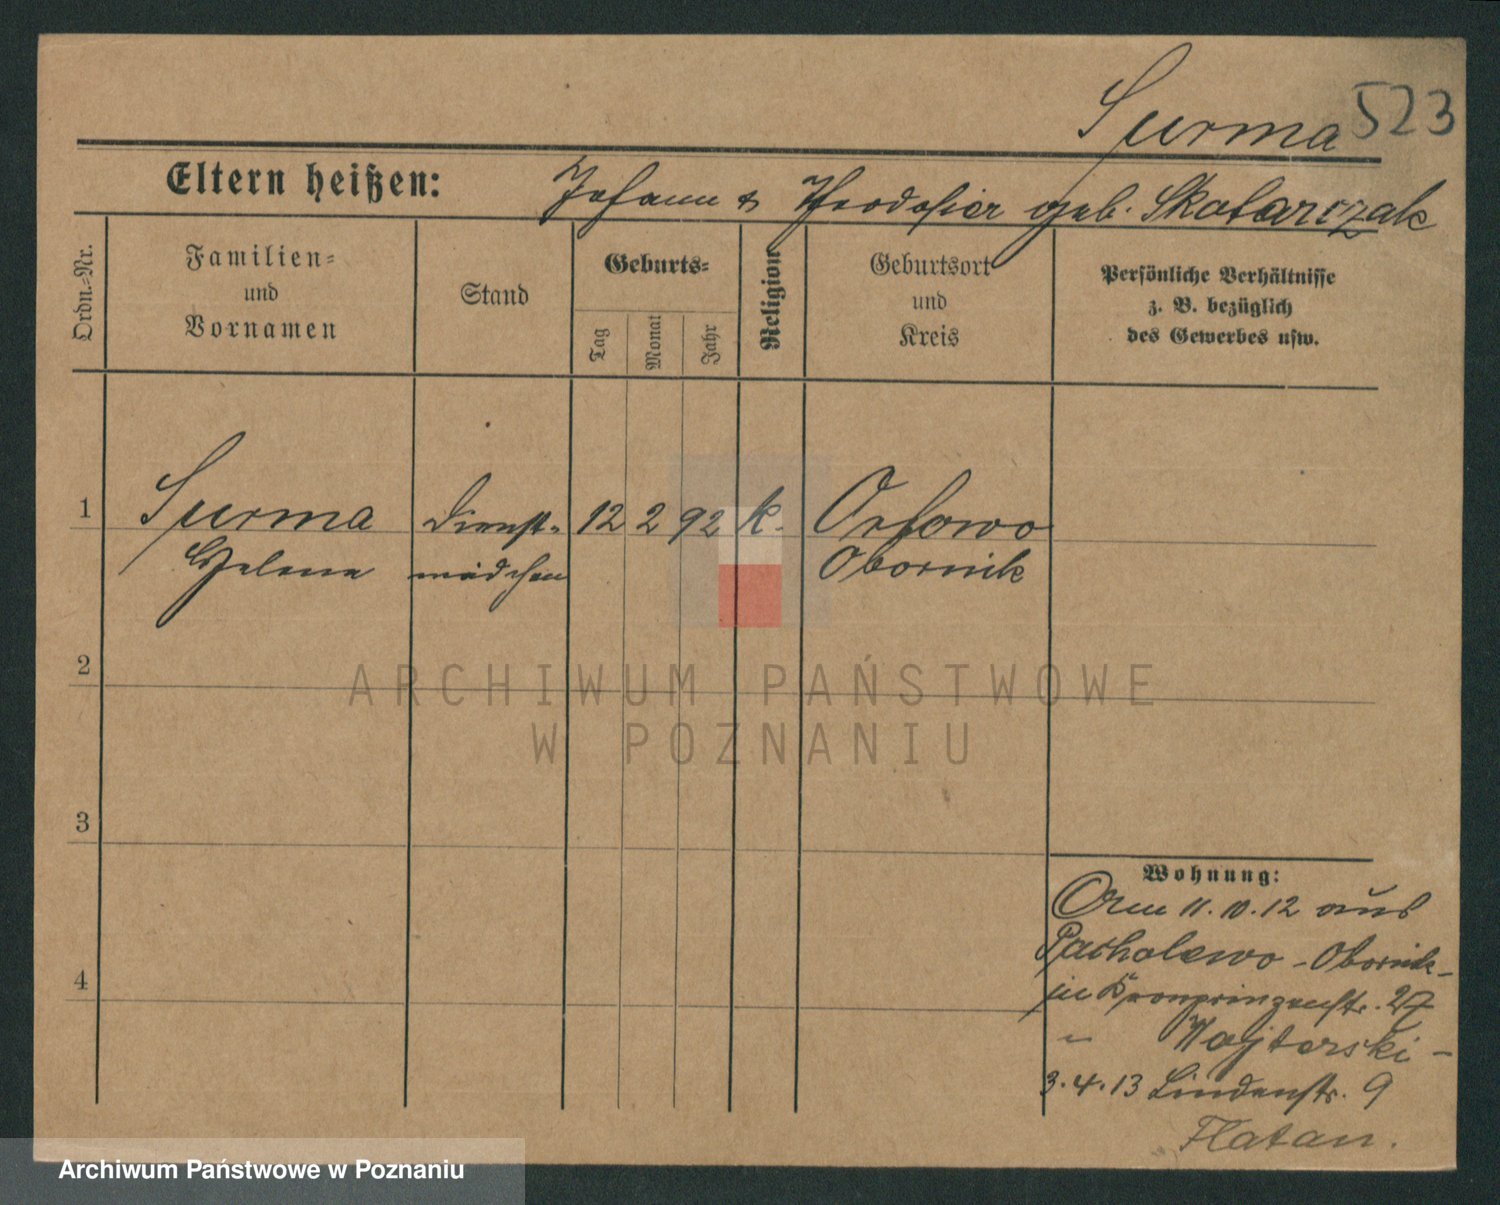 Surma 523
Eltern heißen: Johann & Theodosier geb. Skotarczak
Ordn.-Nr.
Familien-
und
Vornamen
Stand
Geburts-
Tag
Monat
Jahr
Religion
Geburtsort
und
Kreis
Persönliche Verhältnisse
z. B. bezüglich
des Gewerbes usw.
1 Surma Dienst- 12 2 92 k. Orlowo
Helene mädchen Obornik
2
ARCHIWUM PAŃSTWOWE
W POZNANIU
3
Wohnung:
Am 11.10.12 aus
Pacholewo - Obornik -
in Kronprinzenstr. 27
" Wojtarski -
3.4.13 Lindenstr. 9
Flatau.
4
Archiwum Państwowe w Poznaniu